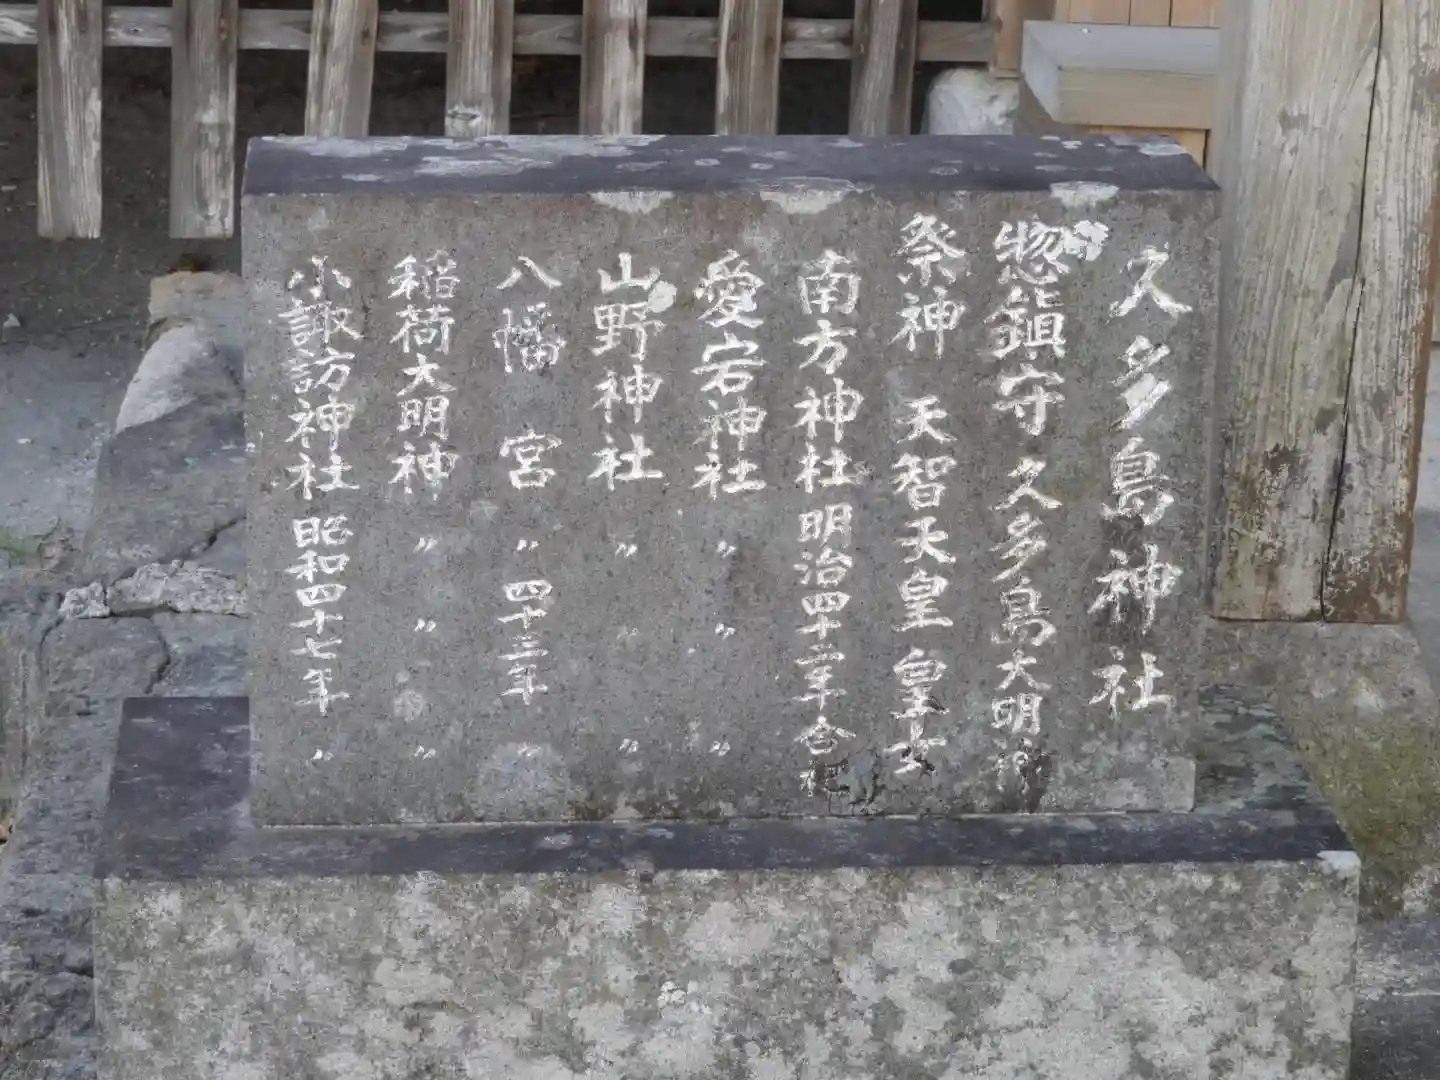 久多島神社
惣鎮守 久多島大明神
祭神 天智天皇 皇女
南方神社 明治四十二年合祀
愛宕神社 〃 〃 〃
山野神社 〃 〃 〃
八幡宮 〃 四十三年 〃
稲荷大明神 〃 〃 〃
小諏訪神社 昭和四十七年 〃